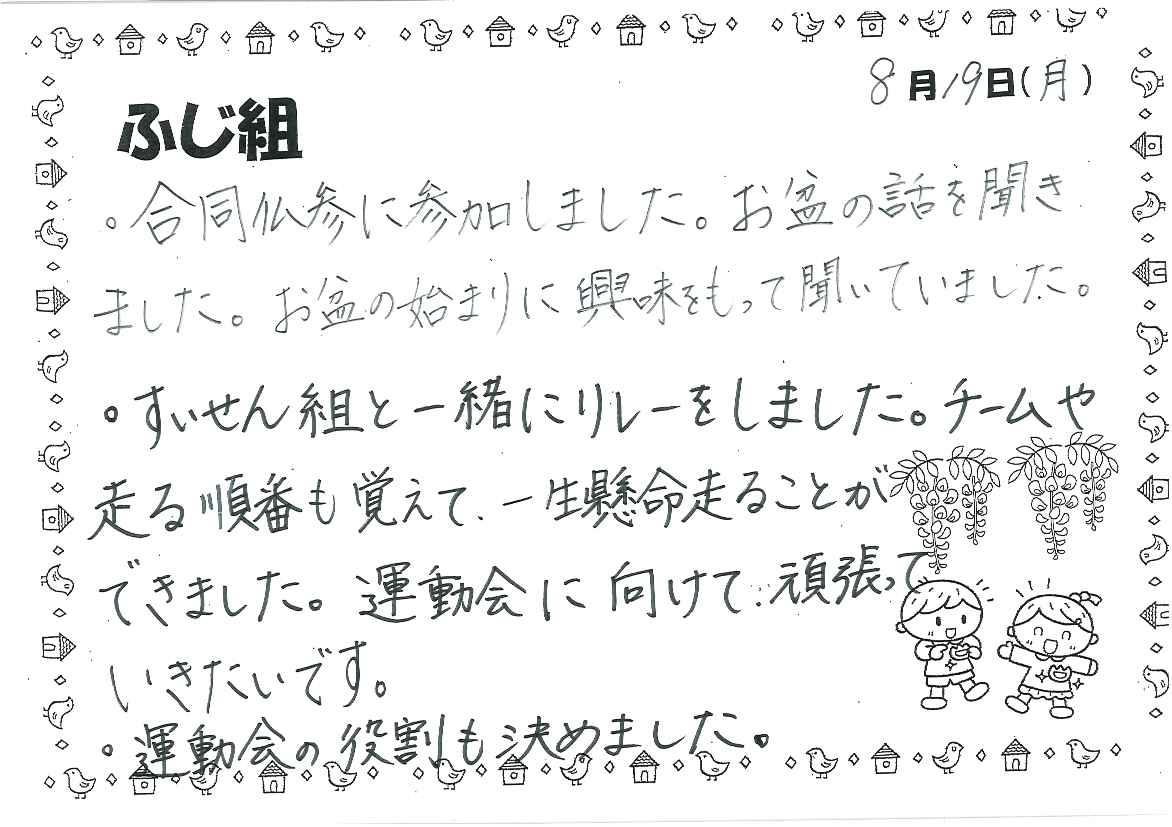 8月19日(月)
ふじ組
。合同仏参に参加しました。お盆の話を聞き
ました。お盆の始まりに興味をもって聞いていました。
。すいせん組と一緒にリレーをしました。チームや
走る順番も覚えて、一生懸命走ることが
できました。運動会に向けて、頑張って
いきたいです。
。運動会の役割も決めました。